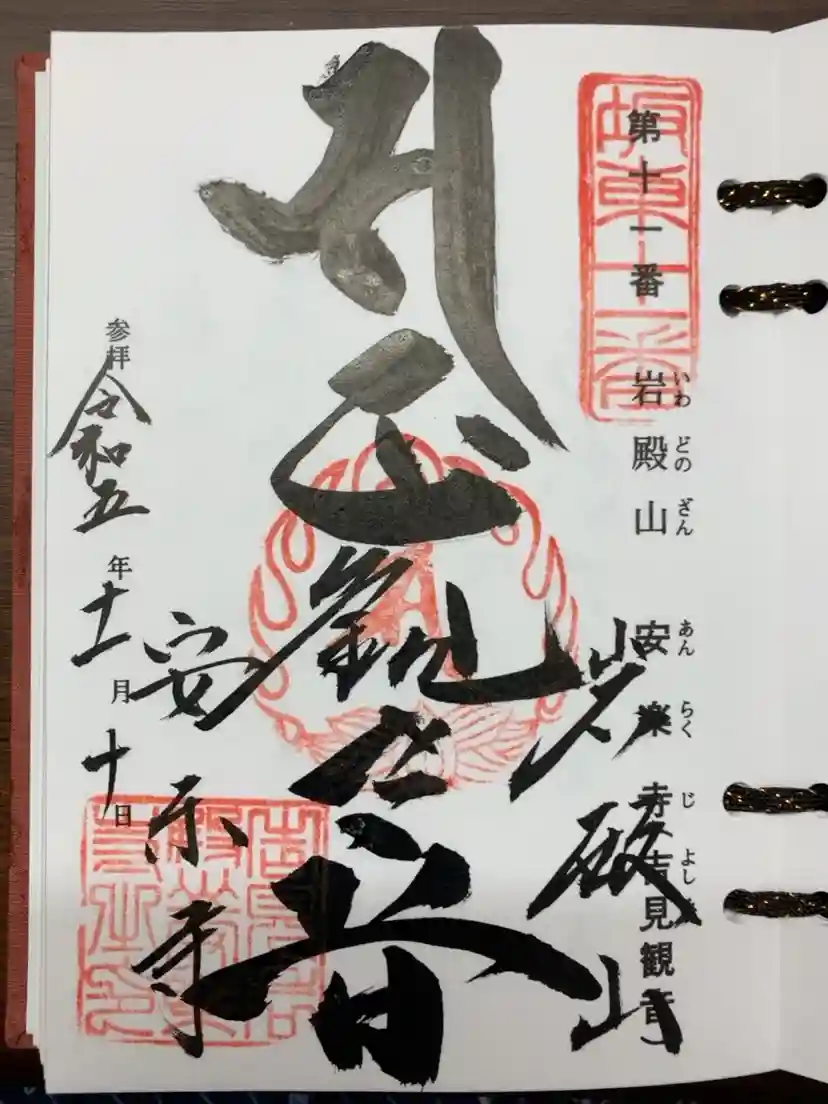 坂東十一番
第十一番 岩殿山 安楽寺(吉見観音)
いわ どの ざん あん らく じ よし
岩殿山
正観世音
安楽寺
参拝 令和五年十一月十日